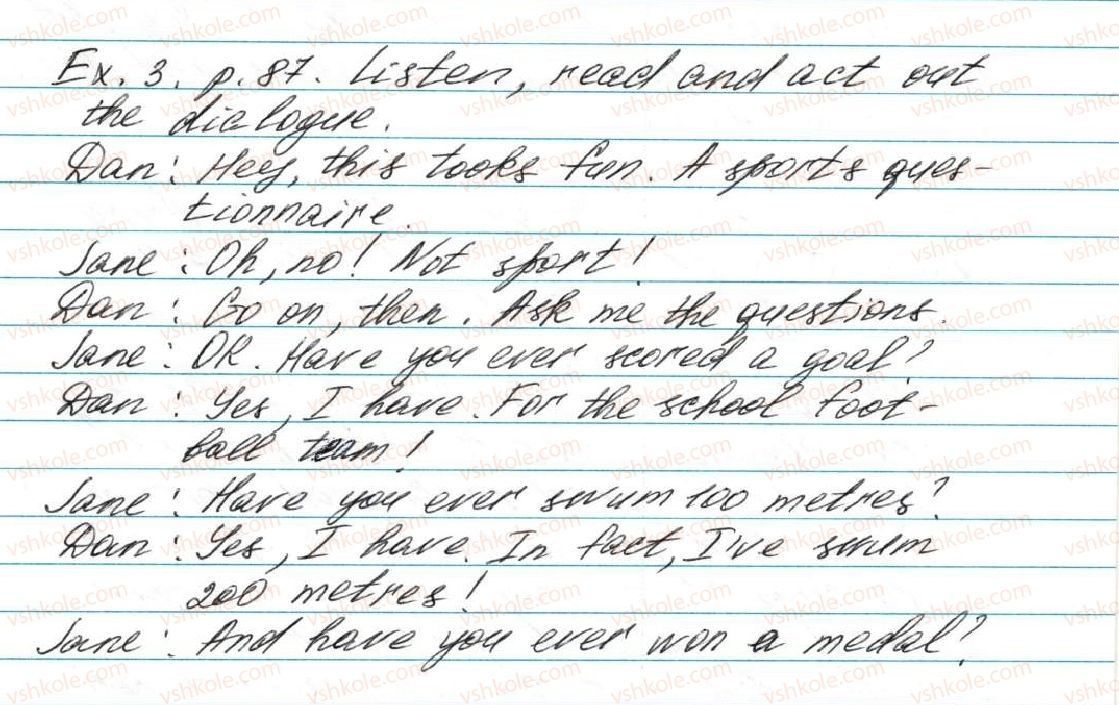 Ex. 3. p. 87. Listen, read and act out
the dialogue.
Dan: Hey, this looks fun. A sports ques-
tionnaire.
Jane: Oh, no! Not sport!
Dan: Go on, then. Ask me the questions.
Jane: OK. Have you ever scored a goal?
Dan: Yes, I have. For the school foot-
ball team!
Jane: Have you ever swum 100 metres?
Dan: Yes, I have. In fact, I've swum
200 metres!
Jane: And have you ever won a medal?
vshkole.com